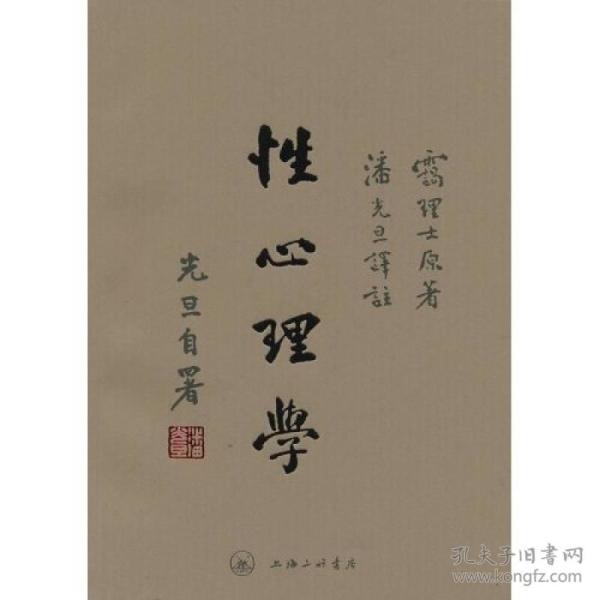 靄理士原著
潘光旦譯註
性心理學
光旦自署
潘光旦
上海三联书店
孔夫子旧书网
www.kongfz.com